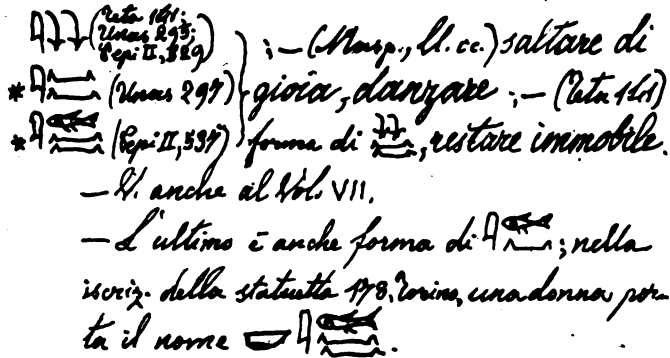 (Teta 141;
Unas 293;
Pepi II, 529)
; — (Masp., ll. cc.) saltare di
* (Unas 297) gioia, danzare ; — (Teta 141)
* (Pepi II, 537) forma di , restare immobile.
— V. anche al Vol. VII.
— L'ultimo è anche forma di ; nella
iscriz. della statuetta 178, Torino, una donna por-
ta il nome .